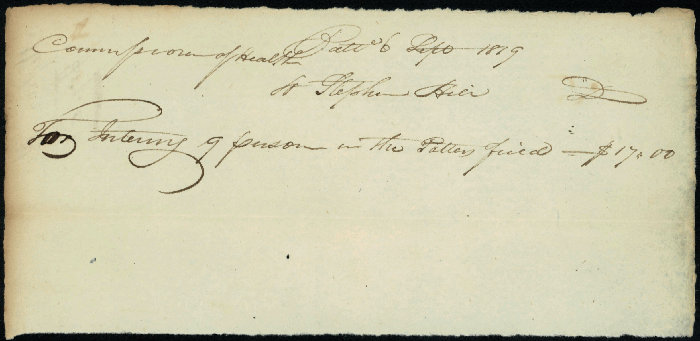 Commissioners of Health Balto 6 Sept 1819
to Stephen Hill Dr
For Intering 9 person in the Potters field — $17.00